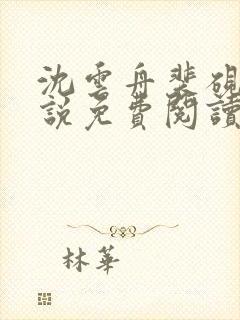 沈雲舟裴硯
說免費閱讀
林華